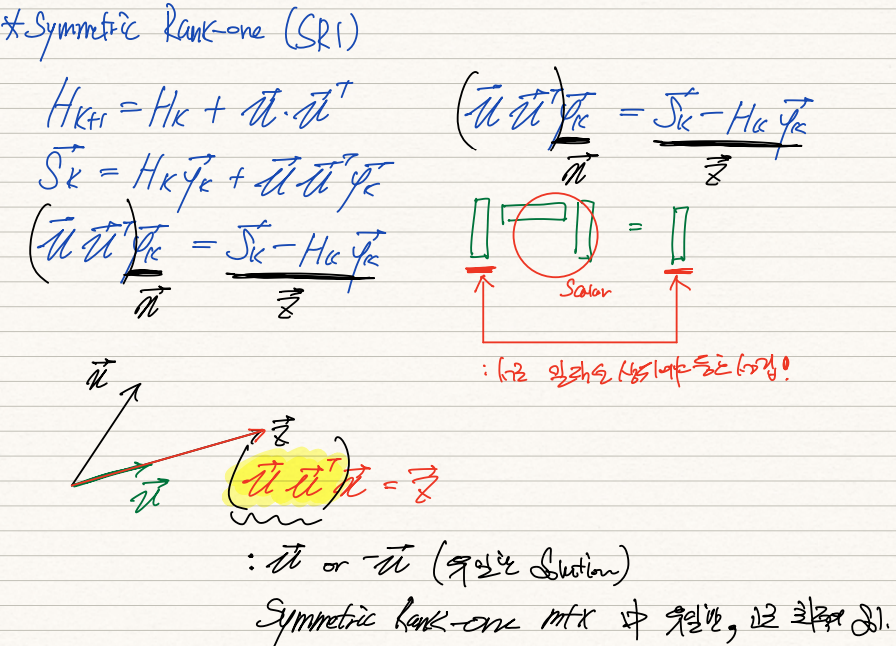 *Symmetric Rank-one (SR1)
H_{K+1} = H_K + \vec{u}·\vec{u}^T
\vec{S_K} = H_K \vec{φ_K} + \vec{u} \vec{u}^T \vec{φ_K}
(\vec{u} \vec{u}^T) \vec{φ_K} = \vec{S_K} - H_K \vec{φ_K}
\vec{x} \vec{z}
(\vec{u} \vec{u}^T) \vec{φ_K} = \vec{S_K} - H_K \vec{φ_K}
\vec{x} \vec{z}
=
Scalar
: 서로
\vec{x}
\vec{z}
\vec{u}
(\vec{u} \vec{u}^T) \vec{x} = \vec{z}
: \vec{u} or -\vec{u} (유일한 Solution)
Symmetric Rank-one mtx 中 유일한,